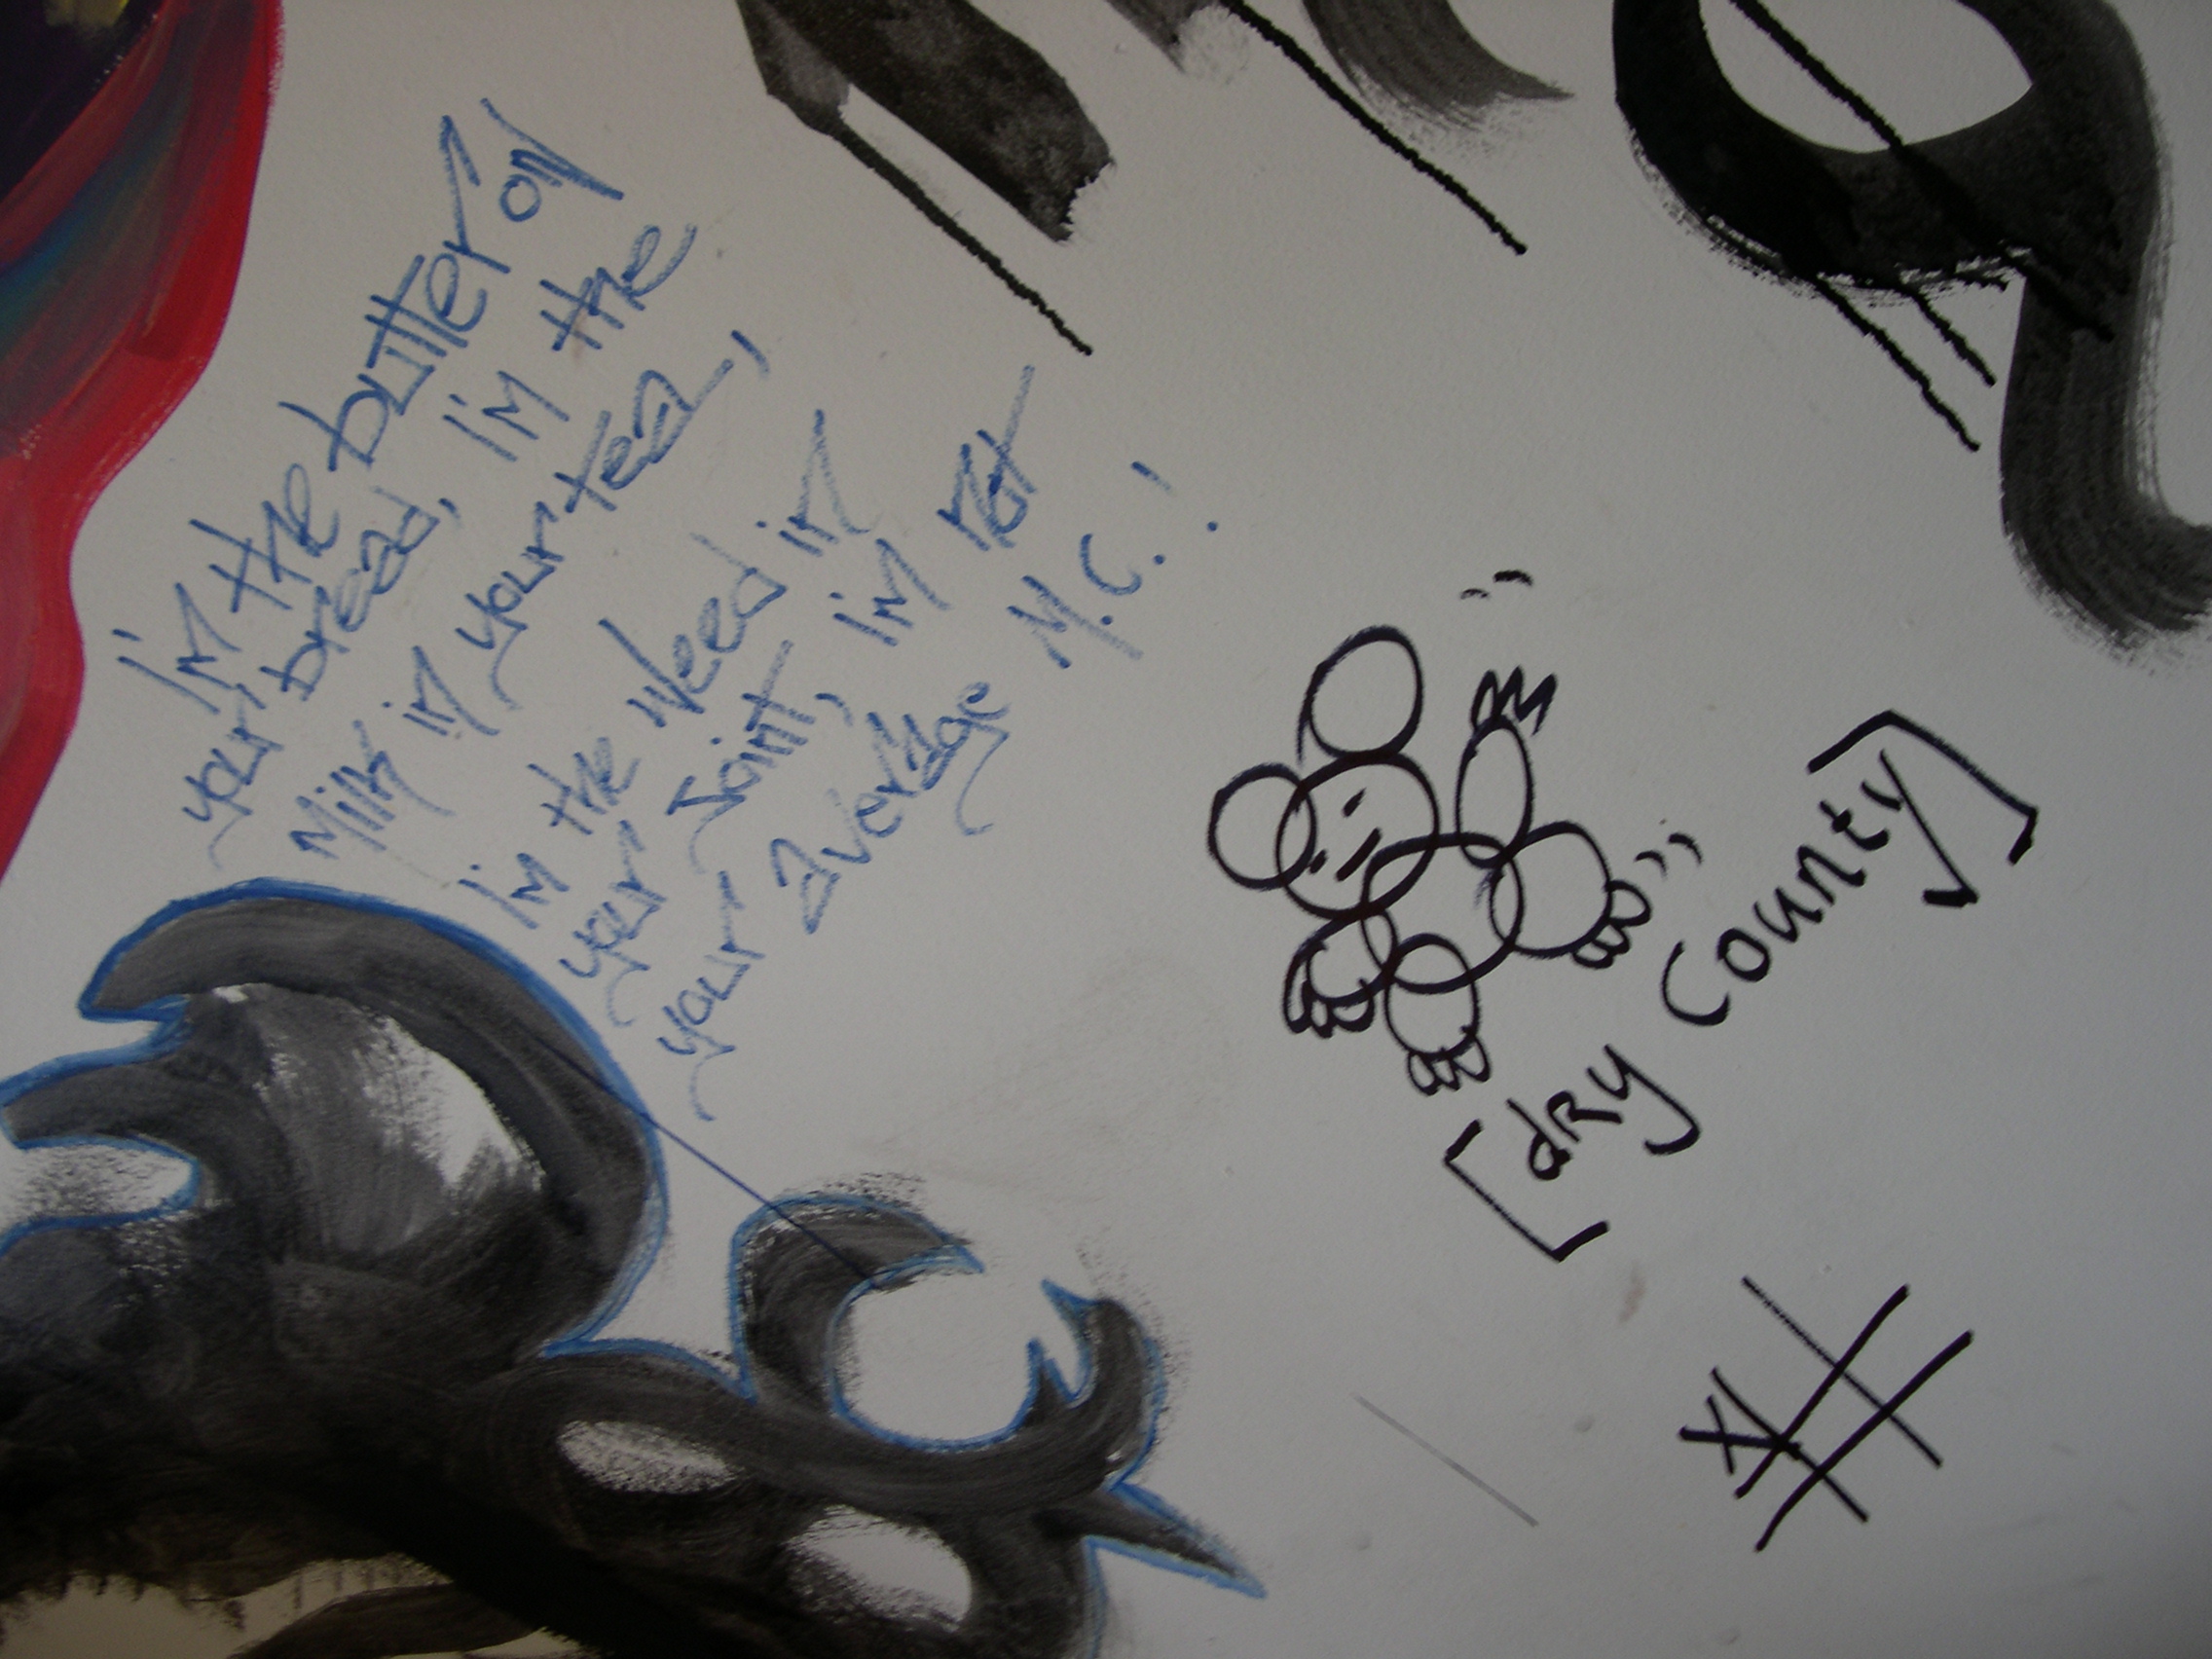 I'm the butter on
your bread, I'm the
Milk in your tea,
I'm the weed in
your Joint, I'm not
your average M.C.!
[dry county]